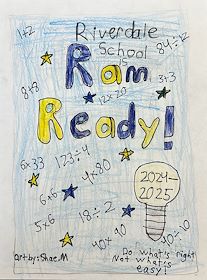 1+2
Riverdale
School
is
84÷12
Ram
3+3
8+8
12×20
Ready!
6×33
123÷4
4×80
2024–
2025
6+6
5×6
18÷2
40×10
40÷10
Do what's right
Not what's
easy!
Art by: Shae.M